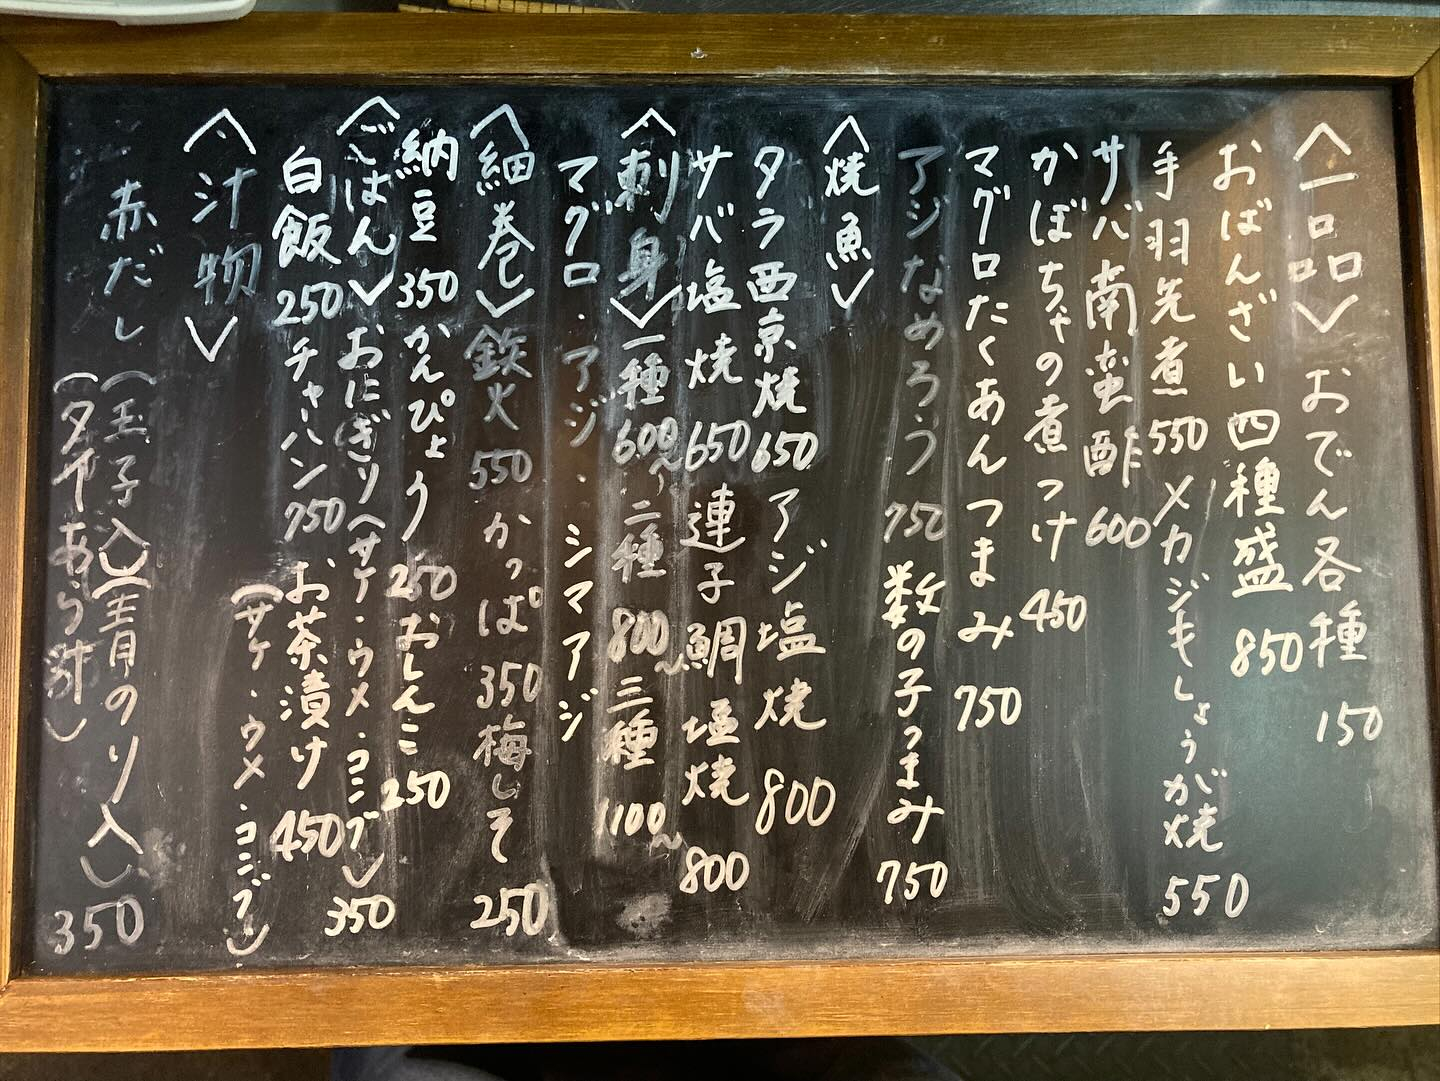 〈一品〉おでん各種 150
おばんざい四種盛 850
手羽先煮 550 メカジキしょうが焼 550
サバ南蛮酢 600
かぼちゃの煮つけ 450
マグロたくあんつまみ 750
アジなめろう 750 数の子つまみ 750
〈焼魚〉
タラ西京焼 650 アジ塩焼 800
サバ塩焼 650 連子鯛塩焼 800
〈刺身〉一種 600〜 二種 800〜 三種 1100〜
マグロ・アジ・シマアジ
〈細巻〉鉄火 550 かっぱ 350 梅しそ 250
納豆 350 かんぴょう 250 おしんこ 250
〈ごはん〉おにぎり(サケ・ウメ・コンブ) 350
白飯 250 チャーハン 750 お茶漬け 450
(サケ・ウメ・コンブ)
〈汁物〉
赤だし (玉子入)(青のり入) 350
(タヤあら汁)